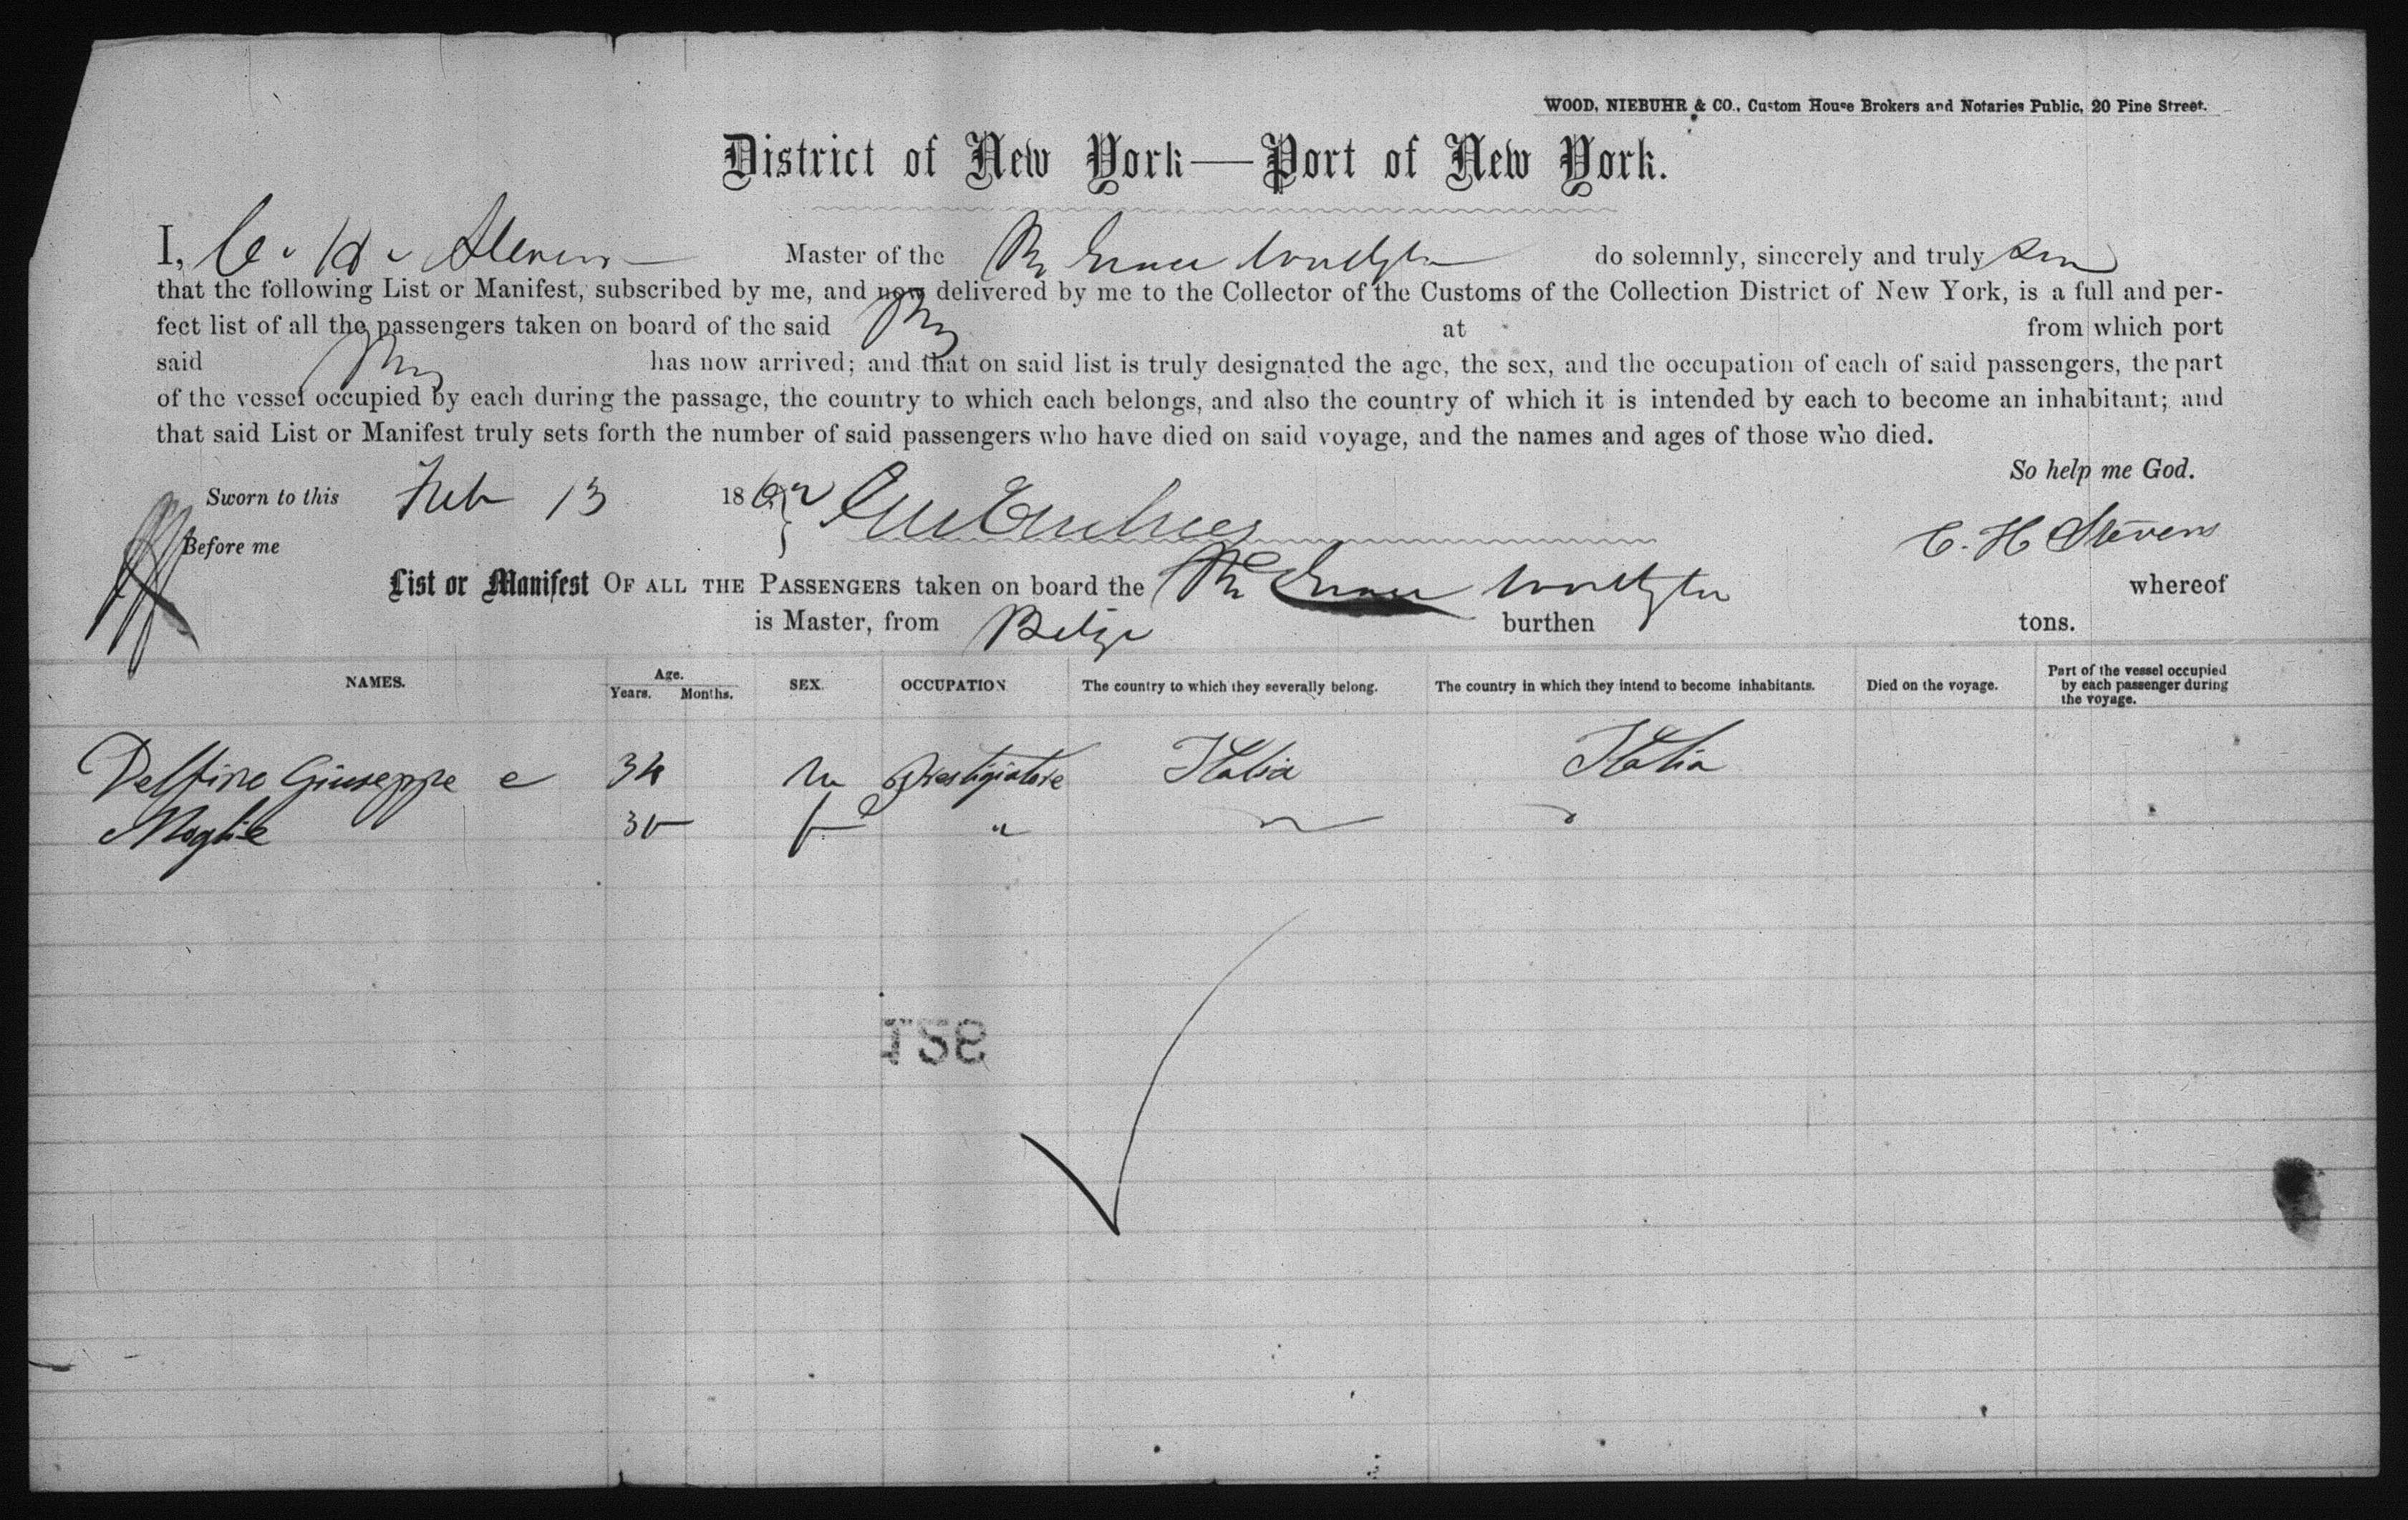 WOOD, NIEBUHR & CO., Custom House Brokers and Notaries Public, 20 Pine Street.
District of New York—Port of New York.
I, C. H. Stevens Master of the Br do solemnly, sincerely and truly
that the following List or Manifest, subscribed by me, and now delivered by me to the Collector of the Customs of the Collection District of New York, is a full and per-
fect list of all the passengers taken on board of the said Brig at from which port
said Brig has now arrived; and that on said list is truly designated the age, the sex, and the occupation of each of said passengers, the part
of the vessel occupied by each during the passage, the country to which each belongs, and also the country of which it is intended by each to become an inhabitant; and
that said List or Manifest truly sets forth the number of said passengers who have died on said voyage, and the names and ages of those who died.
So help me God.
Sworn to this Feb 13 1862
C. H Stevens
Before me
List or Manifest OF ALL THE PASSENGERS taken on board the Br whereof
is Master, from Belize burthen tons.
NAMES. Age. Years. Months. SEX. OCCUPATION The country to which they severally belong. The country in which they intend to become inhabitants. Died on the voyage. Part of the vessel occupied by each passenger during the voyage.
Delfino Giuseppe e 34 m Prestigiatore Italia Italia
Moglie 30 f "
921